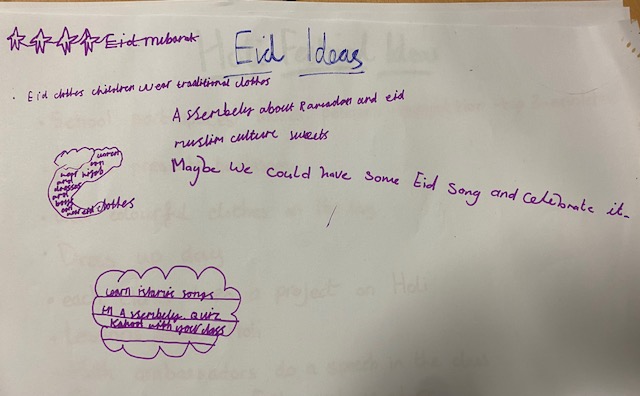 Eid mubarak
Eid Ideas
· Eid clothes children wear traditional clothes
Assembely about Ramadan and eid
muslim culture sweets
Maybe We could have some Eid song and celebrate it.
hijob
and
dresses
and
boys
clothes
Learn islamic songs
Assembely. Quiz
Kahoot with your class